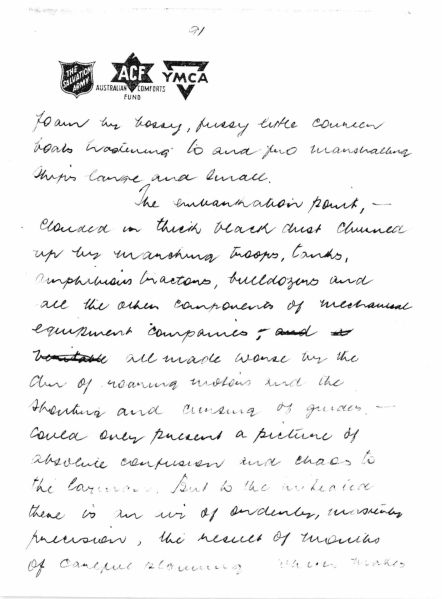 21
THE SALVATION ARMY
ACF
AUSTRALIAN COMFORTS FUND
YMCA
foam by bossy, fussy little courier
boats hastening to and fro marshalling
ships large and small.
The embarkation point, —
clouded in thick black dust churned
up by marching troops, tanks,
amphibious tractors, bulldozers and
all the other components of mechanical
equipment companies, — and
all made worse by the
din of roaring motors and the
shouting and cursing of guides —
could only present a picture of
absolute confusion and chaos to
the layman. But to the initiated
there is an air of orderly,
precision, the result of months
of careful planning which makes